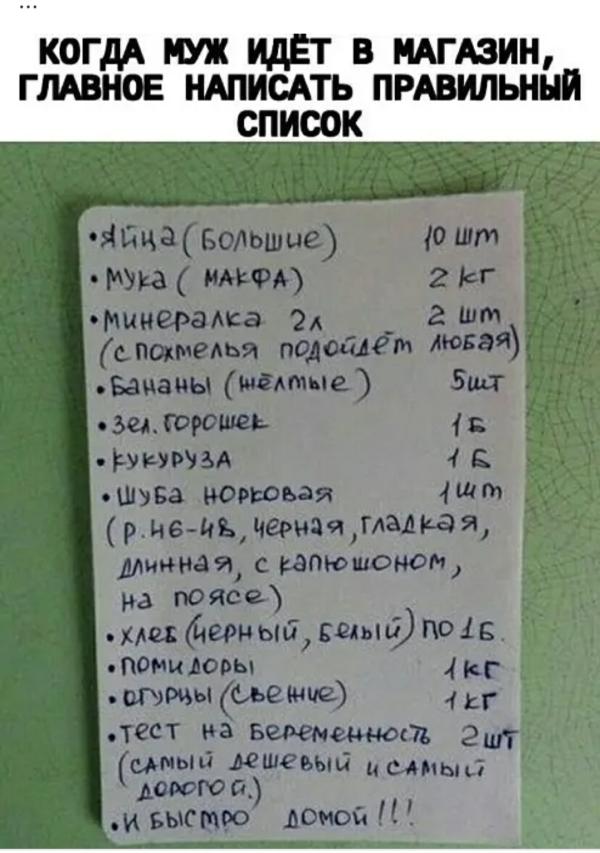 ...
КОГДА МУЖ ИДЁТ В МАГАЗИН,
ГЛАВНОЕ НАПИСАТЬ ПРАВИЛЬНЫЙ
СПИСОК
•Яйца (Большие) 10 шт
•Мука ( МАКФА) 2 кг
•минералка 2л 2 шт
(с похмелья подойдёт любая)
•Бананы (жёлтые) 5шт
•Зел. горошек 1Б
•кукуруза 1 Б
•Шуба норковая 1шт
(р.46-48, черная, гладкая,
длинная, с капюшоном,
на поясе)
•хлеб (черный, белый) по 1Б.
•помидоры 1кг
•огурцы (свежие) 1кг
•тест на беременность 2шт
(самый дешевый и самый
дорогой.)
•И Быстро домой!!!